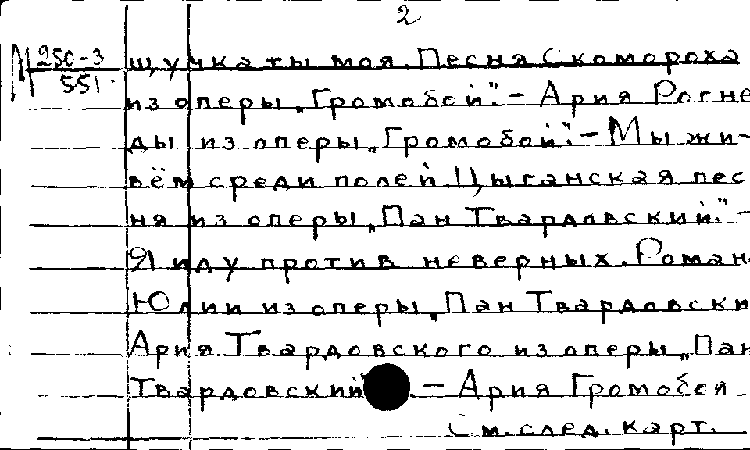 2
М 250-3
551.
щучка ты моя. Песня Скомороха
из оперы „Громобой".— Ария Рогне
ды из оперы „Громобой".— Мы жи-
вём среди полей Цыганская пес
ня из оперы „Пан Твардовский".—
Я иду против неверных. Роман.
Юлии из оперы „Пан Твардовски
Ария Твардовского из оперы „Пан
Твардовский". — Ария Громобоя
См. след. карт.